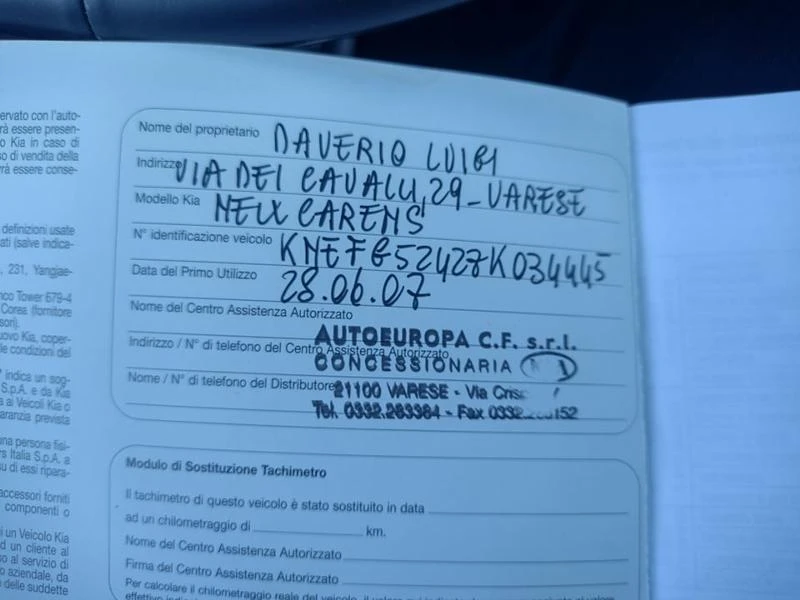 ervato con l'auto-
rà essere presen-
o Kia in caso di
so di vendita della
vrà essere conse-
definizioni usate
ati (salve indica-
, 231, Yangjae-
nco Tower 679-4
Corea (fornitore
sori).
uovo Kia, coper-
le condizioni del
indica un sog-
S.p.A. e da Kia
a ai Veicoli Kia o
aranzia prevista
una persona fisi-
rs Italia S.p.A. a
su di essi ripara-
accessori forniti
componenti o
i un Veicolo Kia
d un cliente al
so al servizio di
o aziendale, da
delle suddette
Nome del proprietario DAVERIO LUIGI
Indirizzo VIA DEI CAVALLI, 29 - VARESE
Modello Kia NEW CARENS
N° identificazione veicolo KNEFG52427K034445
Data del Primo Utilizzo 28.06.07
Nome del Centro Assistenza Autorizzato
AUTOEUROPA C.F. s.r.l.
Indirizzo / N° di telefono del Centro Assistenza Autorizzato
CONCESSIONARIA
Nome / N° di telefono del Distributore
21100 VARESE - Via
Tel. 0332.283384 - Fax 0332. 152
Modulo di Sostituzione Tachimetro
Il tachimetro di questo veicolo è stato sostituito in data
ad un chilometraggio di km.
Nome del Centro Assistenza Autorizzato
Firma del Centro Assistenza Autorizzato
Per calcolare il chilometraggio reale del veicolo, il valore